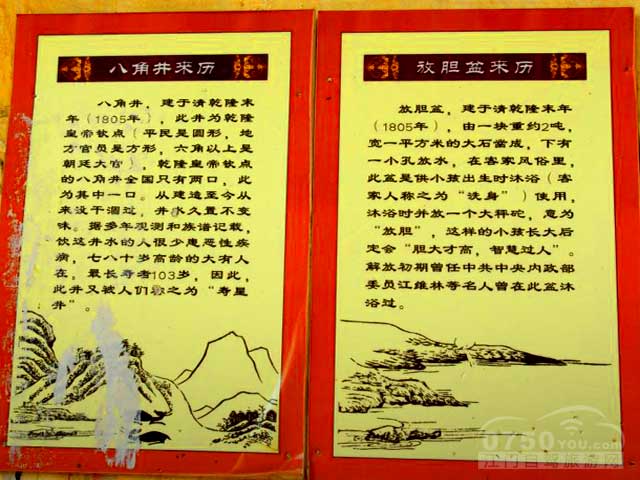 八角井来历
八角井，建于清乾隆末
年（1805年），此井为乾隆
皇帝钦点（平民是圆形，地
方官员是方形，六角以上是
朝廷大官），乾隆皇帝钦点
的八角井全国只有两口，此
为其中一口。从建造至今从
来没干涸过，井水久置不变
味。据多年观测和族谱记载，
饮这井水的人很少患恶性疾
病，七八十岁高龄的大有人
在，最长寿者103岁，因此，
此井又被人们称之为“寿星
井”。
放胆盆来历
放胆盆，建于清乾隆末年
（1805年），由一块重约2吨，
宽一平方米的大石凿成，下有
一小孔放水，在客家风俗里，
此盆是供小孩出生时沐浴（客
家人称之为“洗身”）使用，
沐浴时并放一个大秤砣，意为
“放胆”，这样的小孩长大后
定会“胆大才高，智慧过人”。
解放初期曾任中共中央内政部
委员江维林等名人曾在此盆沐
浴过。
0750YOU.com